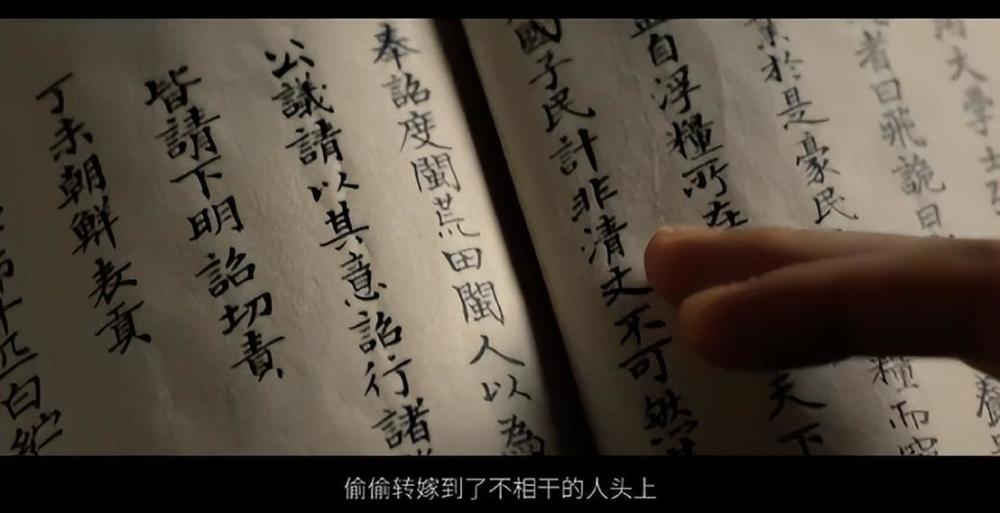 大學士
者曰飛詭曰
業於是豪民
天下
糧而
自浮糧所在
國子民計非清丈不可然
奉詔度閩荒田閩人以為
公議請以其意詔行諸
皆請下明詔切責
丁未朝鮮表貢
十匹白紵
偷偷转嫁到了不相干的人头上